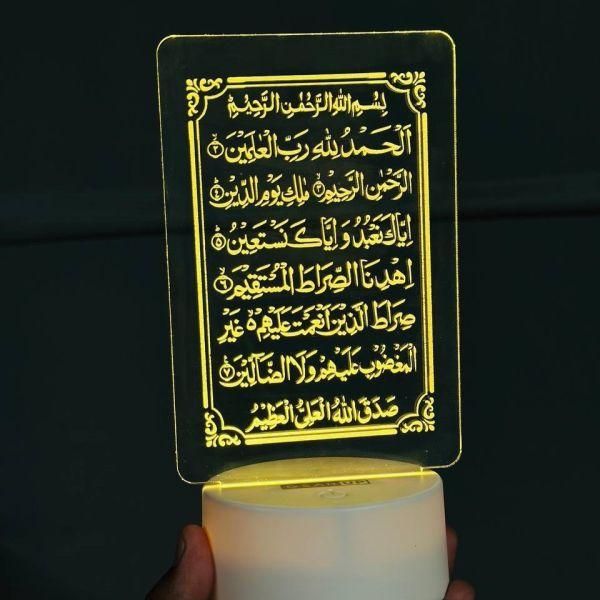 بِسْمِ اللهِ الرَّحْمٰنِ الرَّحِيْمِ
اَلْحَمْدُ لِلّٰهِ رَبِّ الْعٰلَمِيْنَ ۙ﴿٢﴾
الرَّحْمٰنِ الرَّحِيْمِ ۙ﴿٣﴾ مٰلِكِ يَوْمِ الدِّيْنِ ۗ﴿٤﴾
اِيَّاكَ نَعْبُدُ وَاِيَّاكَ نَسْتَعِيْنُ ۗ﴿٥﴾
اِهْدِنَا الصِّرَاطَ الْمُسْتَقِيْمَ ۙ﴿٦﴾
صِرَاطَ الَّذِيْنَ اَنْعَمْتَ عَلَيْهِمْ ەۙ غَيْرِ
الْمَغْضُوْبِ عَلَيْهِمْ وَلَا الضَّاۤلِّيْنَ ۧ﴿٧﴾
صَدَقَ اللهُ الْعَلِيُّ الْعَظِيْمُ